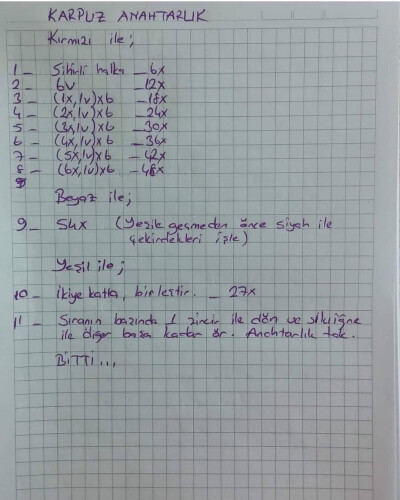 KARPUZ ANAHTARLIK
Kırmızı ile;
1 - Sihirli halka - 6x
2 - 6v - 12x
3 - (1x,1v)x6 - 18x
4 - (2x,1v)x6 - 24x
5 - (3x,1v)x6 - 30x
6 - (4x,1v)x6 - 36x
7 - (5x,1v)x6 - 42x
8 - (6x,1v)x6 - 48x
Beyaz ile;
9 - 54x (Yeşile geçmeden önce siyah ile
çekirdekleri işle)
Yeşil ile;
10 - İkiye katla, birleştir. - 27x
11 - Sıranın başında 1 zincir ile dön ve sık iğne
ile diğer başa kadar ör. Anahtarlık tak.
BİTTİ...